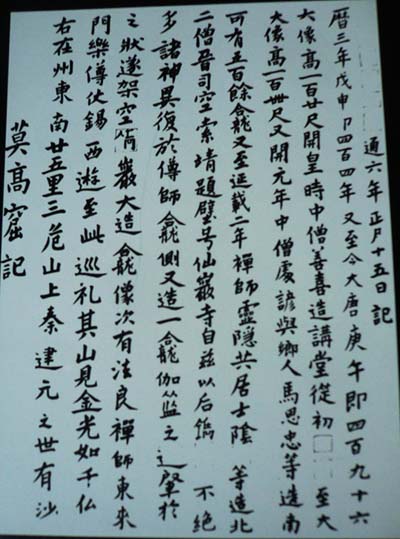 莫高窟記
右在州東南廿五里三危山上秦建元之世有沙
門樂僔仗錫西遊至此巡礼其山見金光如千仏
之狀遂架空鐫巖大造龕像次有法良禅師東来
多諸神異復於僔師龕側又造一龕伽藍之建肇於
二僧晋司空索靖題壁号仙巖寺自兹以后鐫 不絶
可有五百餘龕又至延載二年禅師靈隱共居士陰 等造北
大像高一百卌尺又開元年中僧處諺與鄉人馬思忠等造南
大像高一百廿尺開皇時中僧善喜造講堂從初□ 至大
曆三年戊申即四百四年又至今大唐庚午即四百九十六
通六年正月十五日記